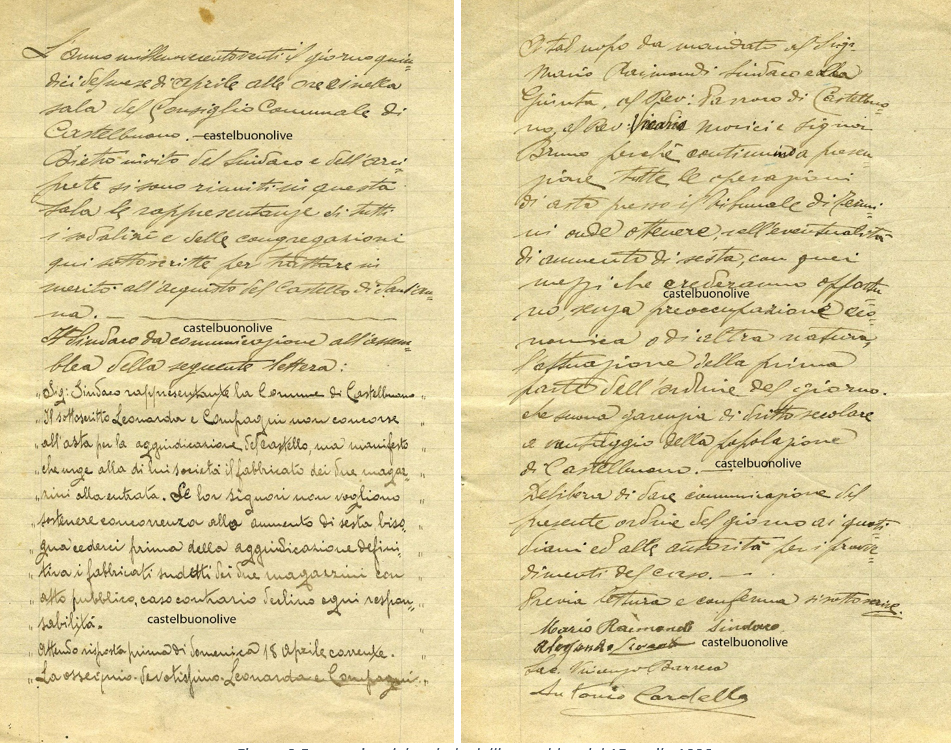 L'anno millenovecentoventi il giorno quin=
dici del mese di aprile alle ore 21 nella
sala del Consiglio Comunale di
Castelbuono. —
castelbuonolive
Dietro invito del Sindaco e dell'arci
prete si sono riuniti in questa
sala le rappresentanze di tutti
i sodalizi e delle congregazioni
qui sottoscritte per trattare in
merito all'acquisto del Castello di Sant'An=
na. —
castelbuonolive
Il Sindaco da comunicazione all'assem=
blea della seguente lettera:
"Sig: Sindaco rappresentante la Comune di Castelbuono
"Il sottoscritto Leonarda e Compagni non concorse
"all'asta per la aggiudicazione del Castello, ma manifesto
"che urge alla di lui società il fabbricato dei due magaz=
"zini alla entrata. Se lor signori non vogliono "
"sostenere concorrenza allo aumento di sesta biso "
"gna cederci prima della aggiudicazione defini "
"tiva i fabbricati sudetti dei due magazzini con "
"atto pubblico, caso contrario declino ogni respon= "
"sabilità. "
castelbuonolive
"Attendo risposta prima di domenica 18 aprile corrente. "
"La ossequio. devotissimo Leonarda e Compagni "
A tal uopo da mandato al Sig.
Mario Raimondi Sindaco e alla
Giunta, al Rev: Parroco di Castelbuo=
no, al Rev: Vicario Morici e Signor
Bruno perchè continuino a presen
ziare tutte le operazioni
di asta presso il Tribunale di Termi=
ni onde ottenere, nell'eventualità
di aumento di sesta, con quei
mezzi che crederanno opportu=
castelbuonolive
no, senza preoccupazione eco=
nomica o di altra natura,
l'attuazione della prima
parte dell'ordine del giorno.
che suona garenzia di diritto secolare
a vantaggio della popolazione
di Castelbuono. —
castelbuonolive
Delibera di dare comunicazione del
presente ordine del giorno ai quoti=
diani ed alle autorità per i provve=
dimenti del caso. —
Previa lettura e conferma si sottoscrive.
Mario Raimondi Sindaco
castelbuonolive
Sac. Vincenzo Barreca
Antonio Cardella